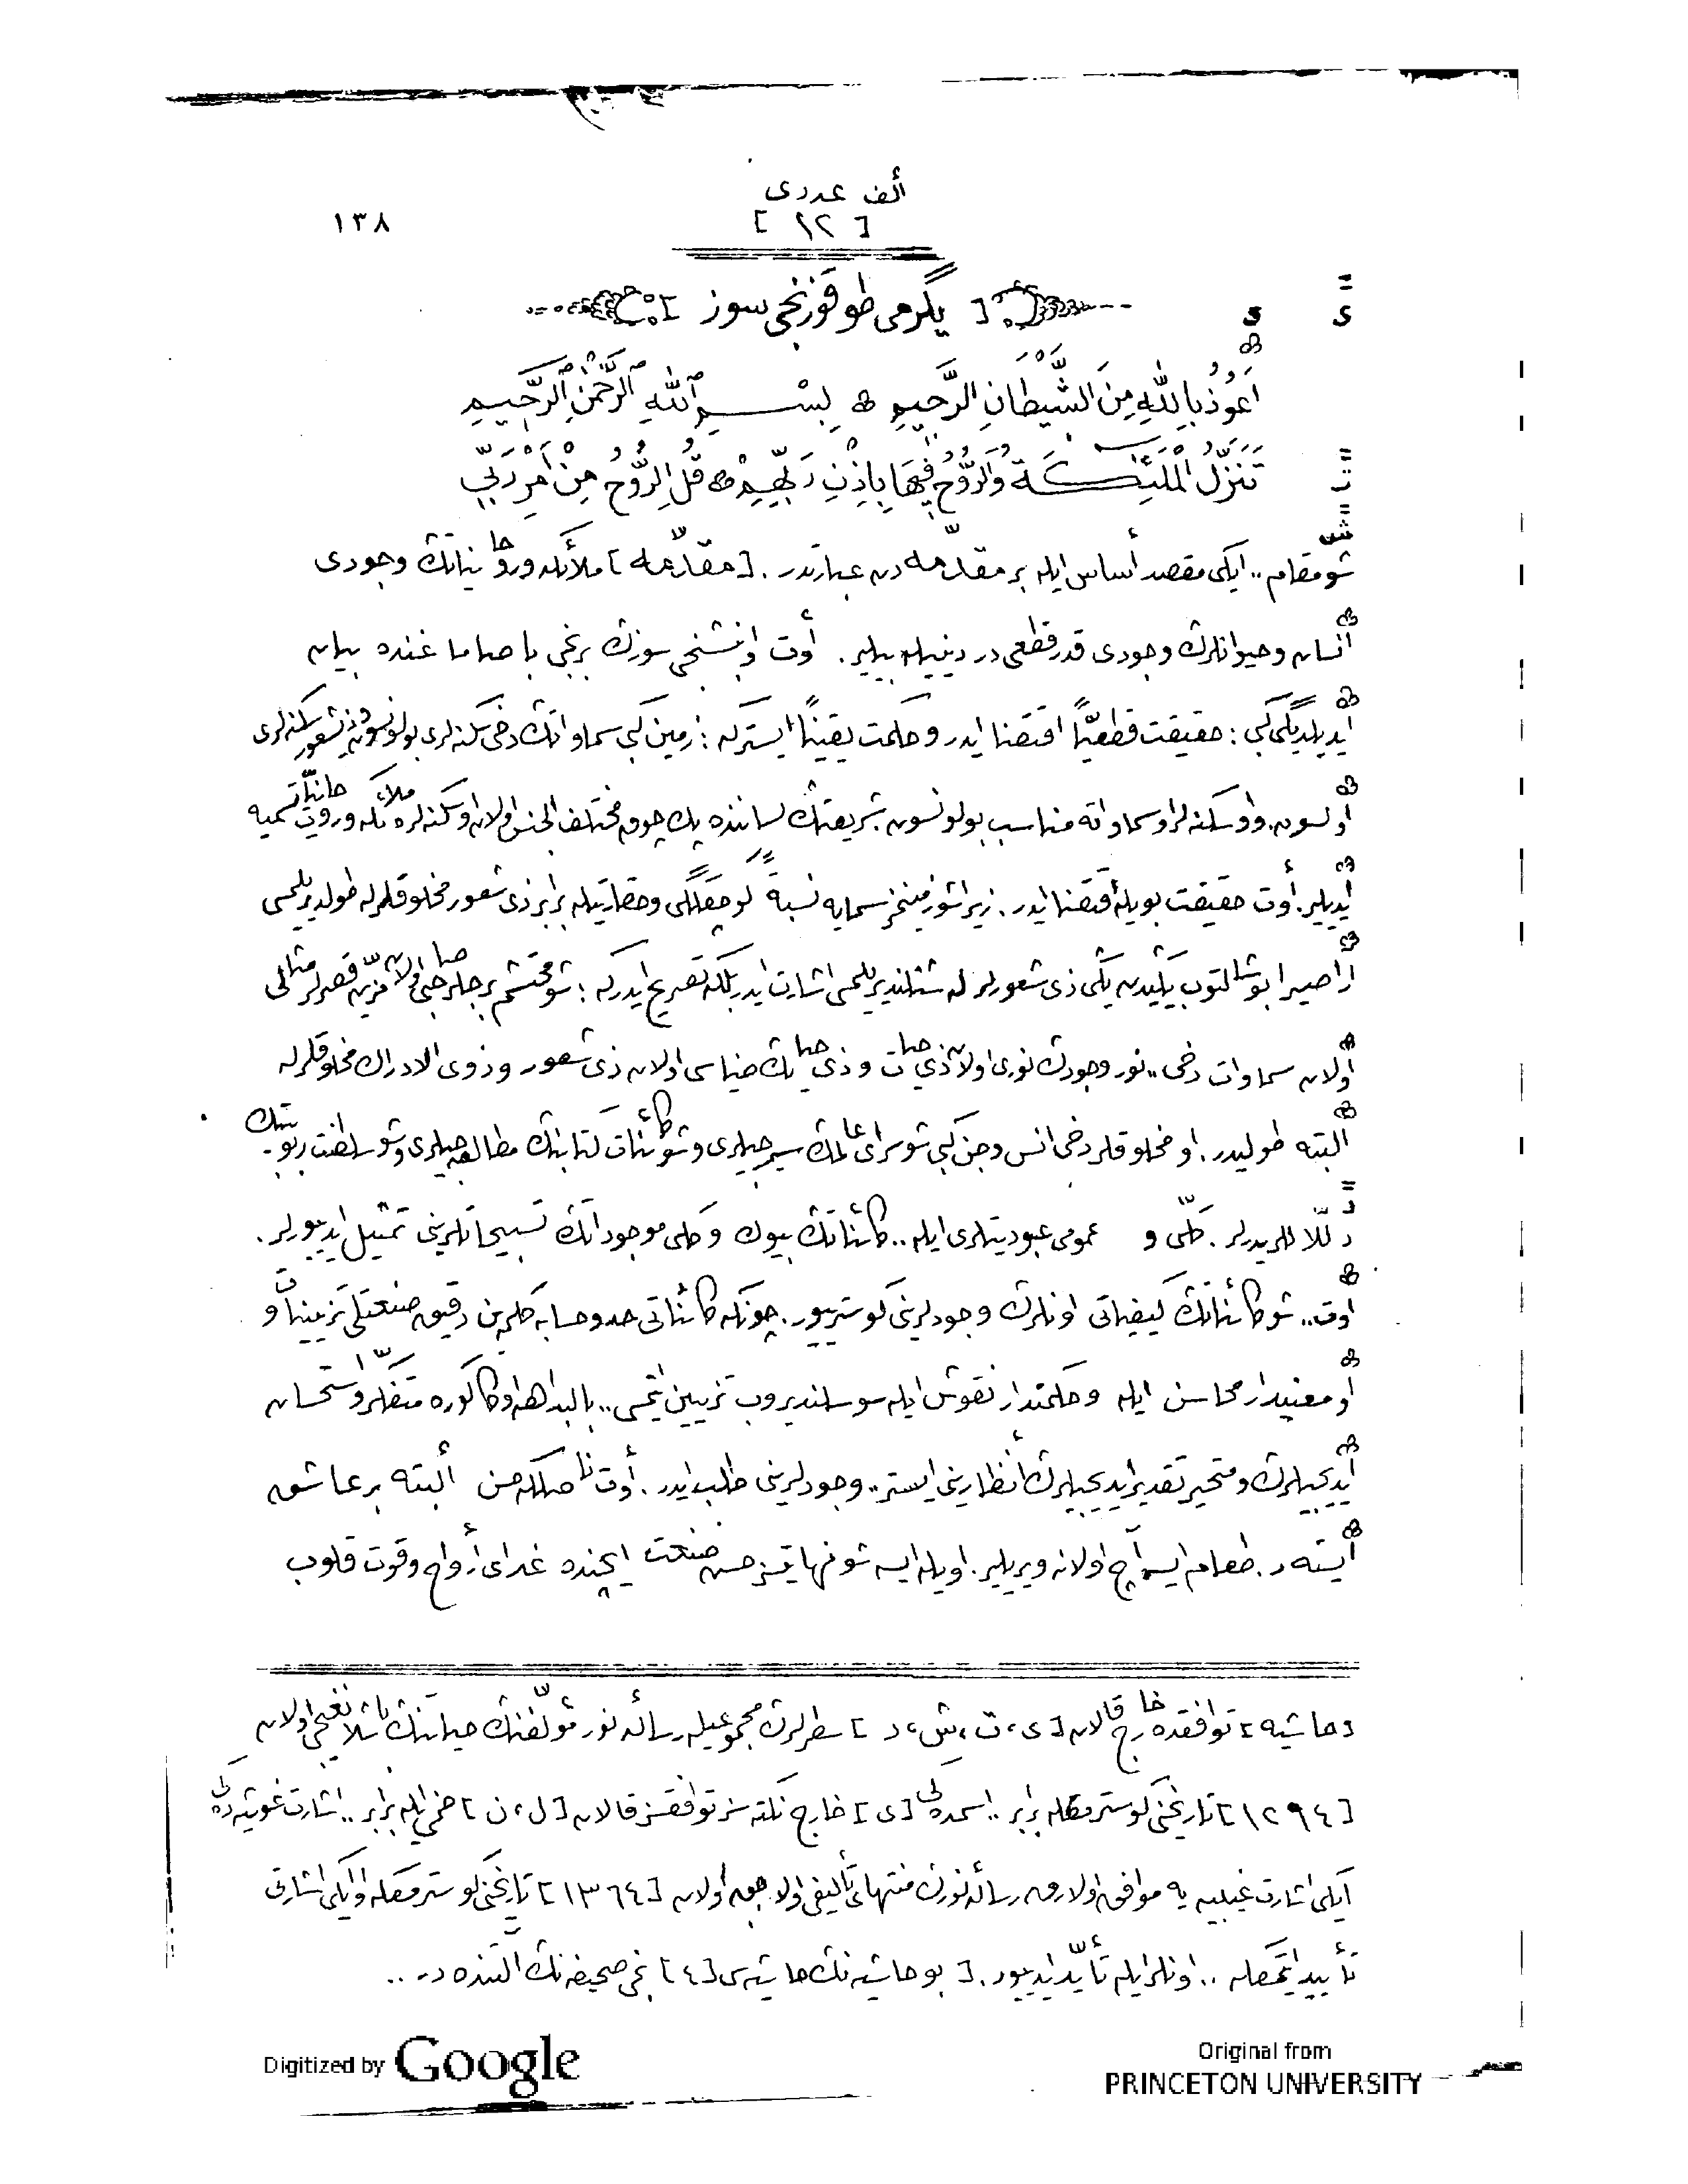 ألف عددی
[ ١٢ ]
١٣٨
[ یگرمی طوقوزنجی سوز ]
ی ی
اَعُوذُ بِاللّٰهِ مِنَ الشَّيْطَانِ الرَّجِيمِ ۞ بِسْمِ اللّٰهِ الرَّحْمٰنِ الرَّحِيمِ
تَنَزَّلُ الْمَلٰئِكَةُ وَالرُّوحُ فِيهَا بِاِذْنِ رَبِّهِمْ ۞ قُلِ الرُّوحُ مِنْ اَمْرِ رَبِّى
شو مقام.. ایکی مقصد أساس ایله بر مقدّمه دن عبارتدر. [ مقدّمه ] ملائكه و روحانیاتڭ وجودی
انسان و حیوانلرڭ وجودی قدر قطعی در دینیله بیلیر. أوت اون بشنجی سوزڭ برنجی باصاماغنده بیان
ایدیلدیگی گبی : حقیقت قطعیًّا اقتضا ایدر و حکمت یقینًا ایسترکه : زمین گبی سماواتڭ دخی سکنه لری بولونسون و ذیشعور سکنه لری
اولسون. و او سکنه لر او سماواته مناسب بولونسون. شریعتڭ لساننده پك چوق مختلف الجنس اولان او سکنه لره ملائکه و روحانیات تسمیه
ایدیلیر. أوت حقیقت بویله اقتضا ایدر. زیرا شو زمینمز سمایه نسبةً کوچکلگی و حقارتیله برابر ذی شعور مخلوقلرله طولدیریلمسی
آرا صیرا بوشالتوب یڭیدن یڭی ذی شعورلرله شنلندیریلمسی اشارت ایدر بلکه تصریح ایدرکه : شو محتشم برجلر صاحبی اولان مزیّن قصرلر مثالی
اولان سماوات دخی.. نور وجودڭ نوری اولان ذی حیات و ذی حیاتڭ ضیاسی اولان ذی شعور و ذوی الادراك مخلوقلرله
البته طولیدر. او مخلوقلر دخی انس و جن گبی شو سرای عالمڭ سیرجیلری و شو کائنات کتابنڭ مطالعه جیلری و شو سلطنت ربوبیتڭ
دلّاللریدرلر. کلّی و عمومی عبودیتلری ایله.. کائناتڭ بیوك و کلی موجوداتڭ تسبیحاتلرینی تمثیل ایدییورلر.
اوت.. شو کائناتڭ کیفیاتی اونلرڭ وجودلرینی گوسترییور. چونکه کائناتی حد و حسابه گلمه ین دقیق صنعتلی تزیینات و
او معنیدار محاسن ایله و حکمتدار نقوش ایله سوسلندیروب تزیین ایتمسی.. بالبداهه اوڭا گوره متفکّر و استحسان
ایدیجیلرڭ و متحیر تقدیر ایدیجیلرڭ أنظارینی ایستر.. وجودلرینی طلب ایدر. أوت ناصلکه حسن ألبته بر عاشق
ایسته ر. طعام ایسه آچ اولانه ویریلیر. اویله ایسه شو نهایتسز حسن صنعت ایچنده غدای أرواح و قوت قلوب
[ حاشیه ] توافقده خارج قالان [ ی ، ت ، ش ، د ] سطرلرڭ مجموعیله رسالۀ نور مؤلّفنڭ حیاتنڭ باشلانغیجی اولان
[ ١٢٩٤ ] تاریخنی گوسترمکله برابر.. اسمده کی [ ی ] خارج نکته سز توافقسز قالان [ ل ، ن ] ضمی ایله برابر.. اشارت غوثیه ده کی
ایکی اشارت غیبیه یه موافق اولارق رسالۀ نورڭ منتهای تألیفی اولاجق اولان [ ١٣٦٤ ] تاریخنی گوسترمکله او ایکی اشارتی
تأیید ایتمکله.. اونلر ایله تأیّد ایدییور. [ بو حاشیه نڭ حاشیه سی [٤] نجی صحیفه نڭ آلتنده در..
Digitized by Google
Original from
PRINCETON UNIVERSITY